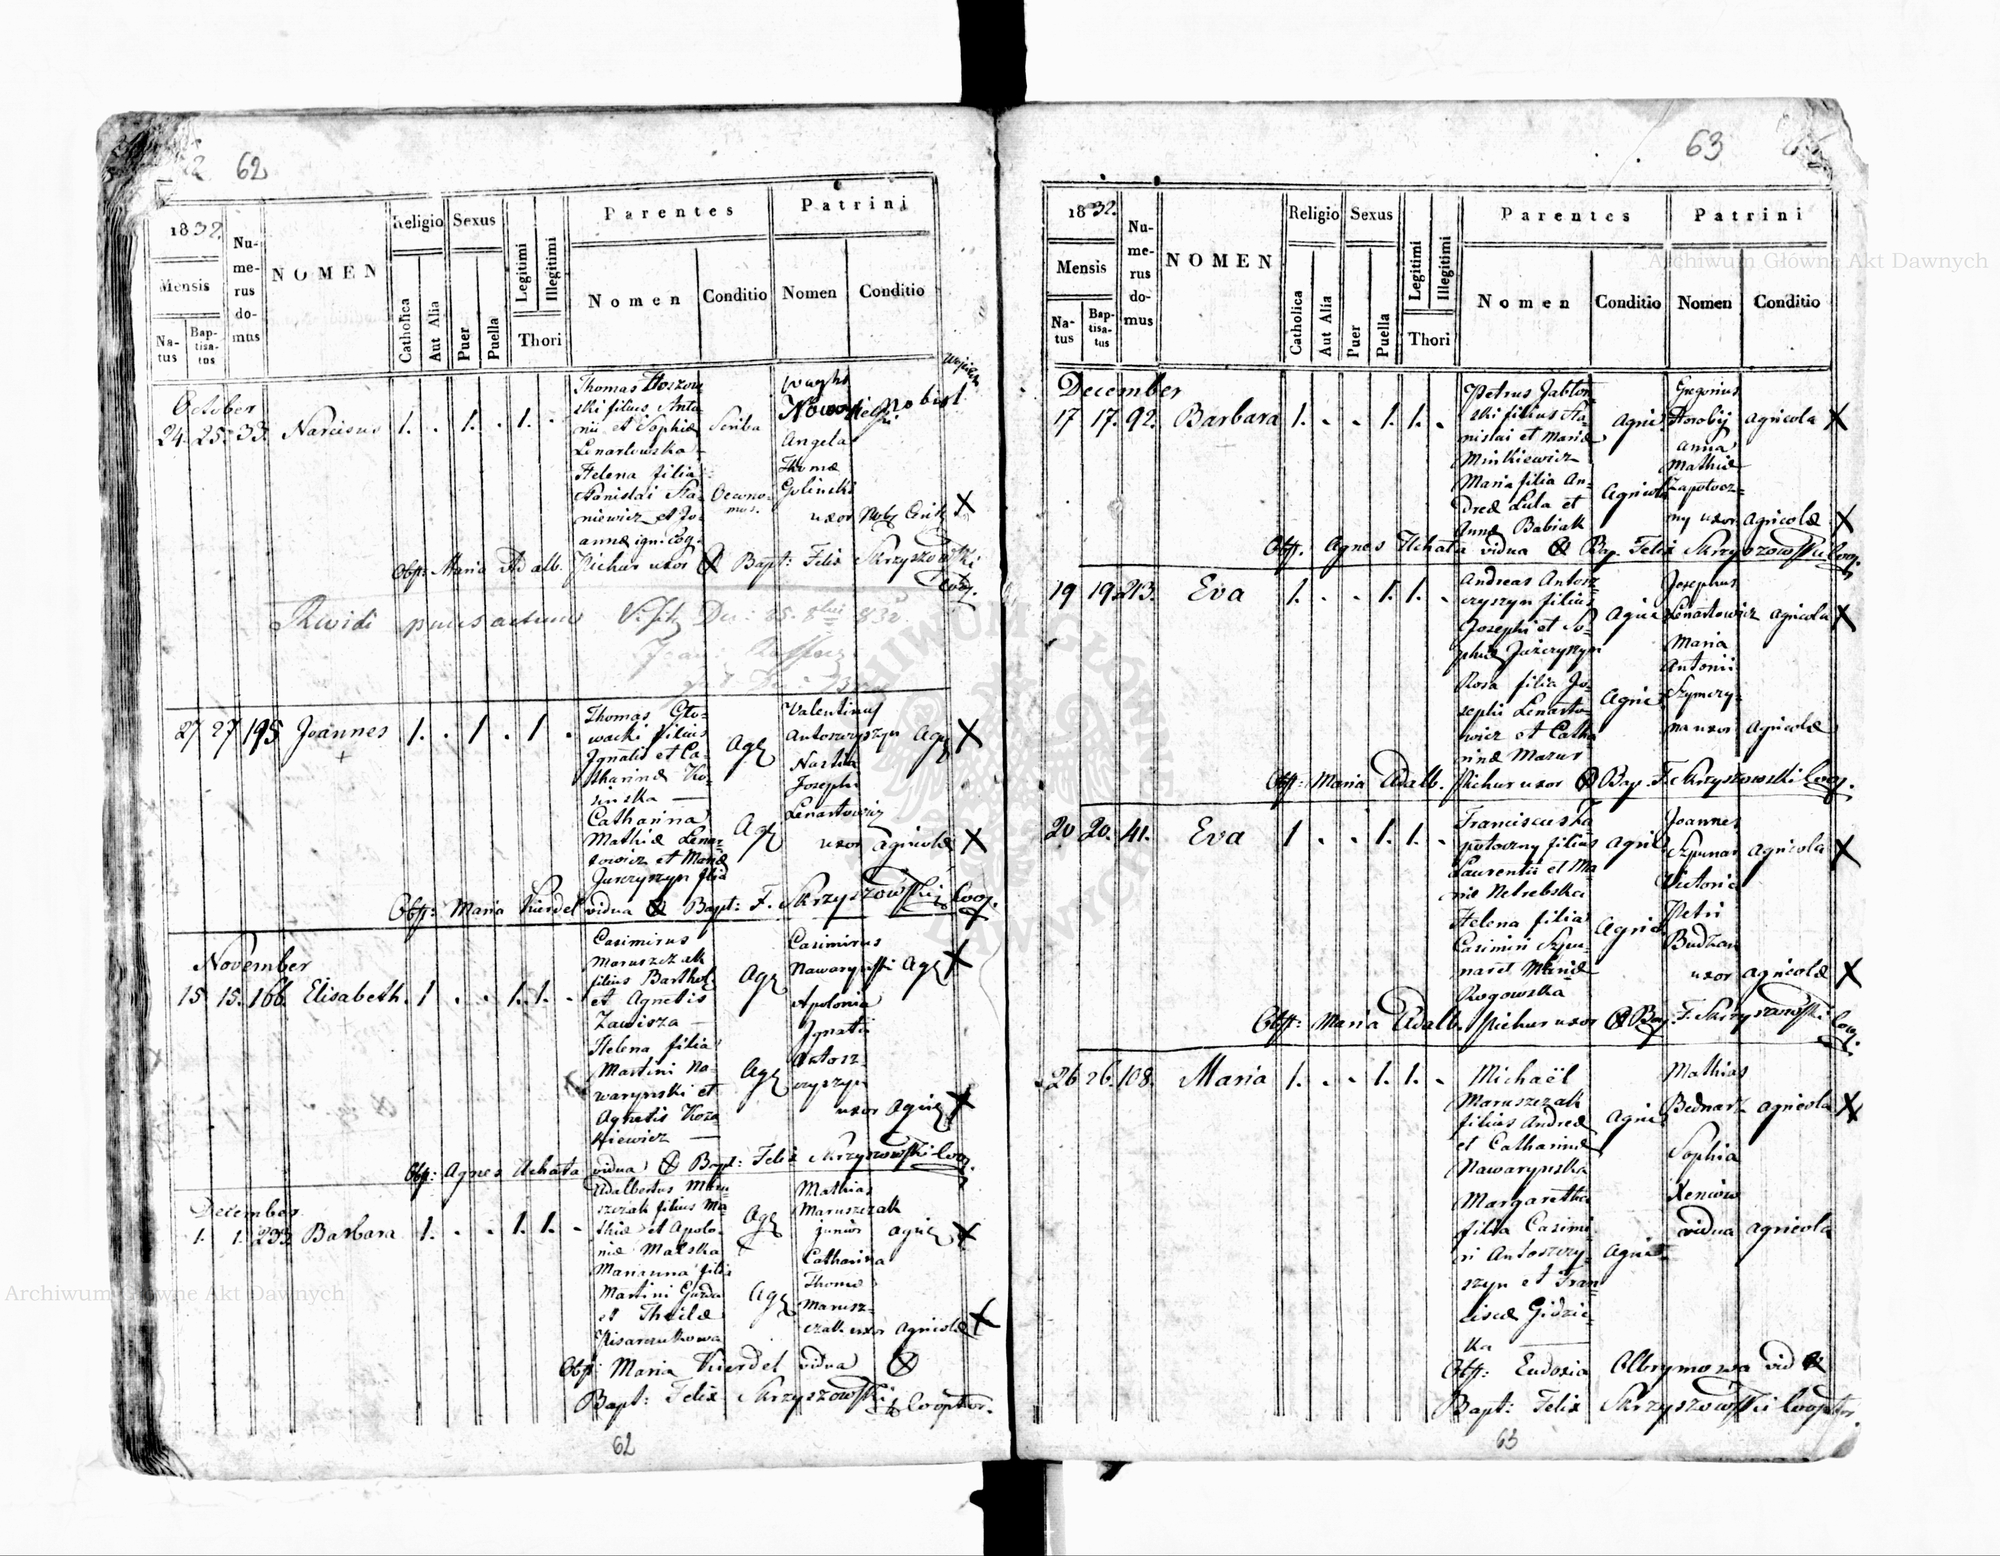 62
1832.
Mensis
Natus
Baptisatus
Numerus domus
NOMEN
Religio
Catholica
Aut Alia
Sexus
Puer
Puella
Legitimi
Illegitimi
Thori
Parentes
Nomen
Conditio
Patrini
Nomen
Conditio
October
24. 25. 33. Narcisus 1. . 1. . 1. .
Thomas
ski filius Anto
nii et Sophiæ
Lenartowska
Helena filia
Stanislai Sta=
niewicz et Jo=
annæ
Scriba
Oecono=
mus.
Angela
Thomæ
Golinski
uxor
Obst: Maria Adalb. Pichur uxor Bapt: Felix Skrzyszowski
Coop.
27 27 195 Joannes 1. . 1 . 1. .
Thomas Gło=
wacki filius
Ignatii et Ca=
tharinæ Ko=
sinska
Catharina
Mathiæ Lenar=
towicz et Mariæ
Jurczyszyn filia
Agr
Agr
Valentinus
Antoszczyszyn Agr X
Nastia
Josephi
Lenartowicz
uxor agricolæ X
Obst: Maria Kierdel vidua Bapt: F. Skrzyszowski Coop.
November
15 15. 166. Elisabeth. 1 . . 1. 1. .
Casimirus
Maruszczak
filius Barthol
et Agnetis
Zawisza
Helena filia
Martini Na=
warynski et
Agnetis Koza
kiewicz
Agr
Agr
Casimirus
Nawarynski Agr X
Apolonia
Ignatii
Antosz=
czyszyn
uxor Agric X
Obst: Agnes Uchata vidua Bapt: Felix Skrzyszowski Coop.
December
1. 1. 233. Barbara 1. . . 1. 1. .
Adalbertus Maru=
szczak filius Ma=
thiæ et Apolo=
niæ Malska
Marianna filia
Martini
et Theclæ
Pisarczukowa
Agr
Agr
Mathias
Maruszczak
junior agric X
Catharina
Thomæ
Marusz=
czak uxor agricolæ X
Obst: Maria Kierdel vidua
Bapt: Felix Skrzyszowski Cooptor.
62
63
1832.
Mensis
Natus
Baptisatus
Numerus domus
NOMEN
Religio
Catholica
Aut Alia
Sexus
Puer
Puella
Legitimi
Illegitimi
Thori
Parentes
Nomen
Conditio
Patrini
Nomen
Conditio
December
17 17. 92. Barbara 1. . . 1. 1. .
Petrus Jabłon=
ski filius Sta=
nislai et Mariæ
Minkiewicz
Maria filia An=
dreæ Lula et
Annæ Babiak
Agric.
Agricola
Gregorius
Horobij agricola X
Anna
Mathiæ
Zapotocz=
ny uxor agricolæ X
Obst. Agnes Uchata vidua Bap. Felix Skrzyszowski Coop.
19 19. 213. Eva 1. . . 1. 1. .
Andreas Antosz
czyszyn filius
Josephi et So=
phiæ Jurczyszyn
Rosa filia Jo=
sephi Lenarto=
wicz et Catha
rinæ Mazur
Agric
Agric
Josephus
Lenartowicz agricola X
Maria
Antonii
Szymczy=
na uxor agricolæ
Obst: Maria Adalb. Pichur uxor Bap. F. Skrzyszowski Coop.
20 20. 41. Eva 1 . . 1. 1. .
Franciscus Za
potoczny filius
Laurentii et Ma
riæ Netrebska
Helena filia
Casimiri Szpu=
nar et Mariæ
Rogowska
agric
Agric
Joannes
Szpunar agricola X
Victoria
Petri
Budzan
uxor agricolæ X
Obst: Maria Adalb. Pichur uxor Bap. F. Skrzyszowski Coop.
26 26. 108. Maria 1. . . 1. 1. .
Michaël
Maruszczak
filius Andreæ
et Catharinæ
Nawarynska
Margaretha
filia Casimi
ri Antoszczy=
szyn et Fran
ciscæ Gidzic=
ka
Agric
Agric
Mathias
Bednarz agricola X
Sophia
Xeniów
vidua agricola
Obst: Eudoxia Olbrymowa vid
Bapt: Felix Skrzyszowski Cooptor.
63
Archiwum Główne Akt Dawnych
Archiwum Główne Akt Dawnych